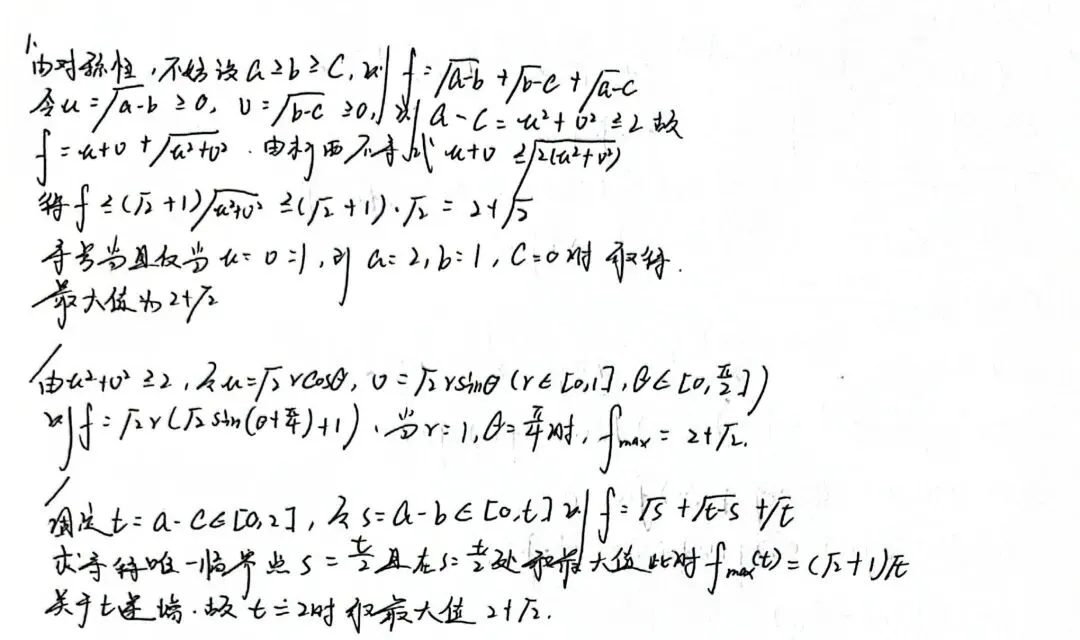 1.
由对称性,不妨设 a≥b≥c,则 f=√(a-b)+√(b-c)+√(a-c)
令u=√(a-b)≥0, v=√(b-c)≥0,则 a-c=u²+v²≤2 故
f=u+v+√(u²+v²). 由柯西不等式 u+v≤√(2(u²+v²))
得 f≤(√2+1)√(u²+v²)≤(√2+1)·√2=2+√2
等号当且仅当 u=v=1,即 a=2,b=1,c=0时取得.
最大值为2+√2
由u²+v²≤2,令u=√2rcosθ, v=√2rsinθ(r∈[0,1],θ∈[0,π/2])
则f=√2r(√2sin(θ+π/4)+1). 当r=1,θ=π/4时, fmax=2+√2.
固定t=a-c∈[0,2],令s=a-b∈[0,t]则f=√s+√(t-s)+√t
求导得唯一临界点s=t/2且在s=t/2处取最大值此时fmax(t)=(√2+1)√t
关于t递增.故t=2时取最大值2+√2.